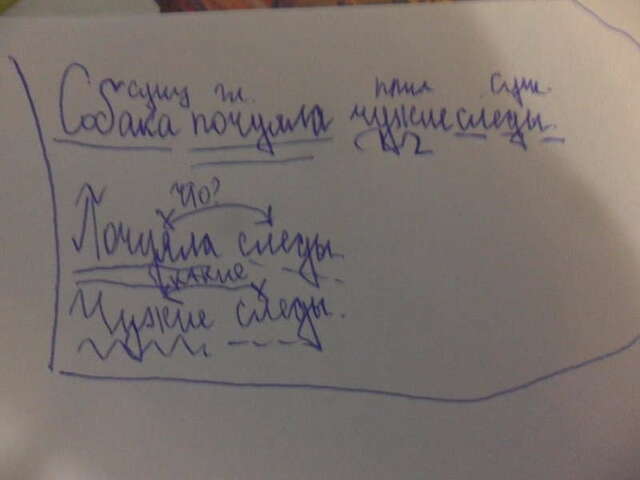 сущ гл. прил сущ.
Собака почуяла чужие следы.
что?
Почуяла следы.
какие
Чужие следы.